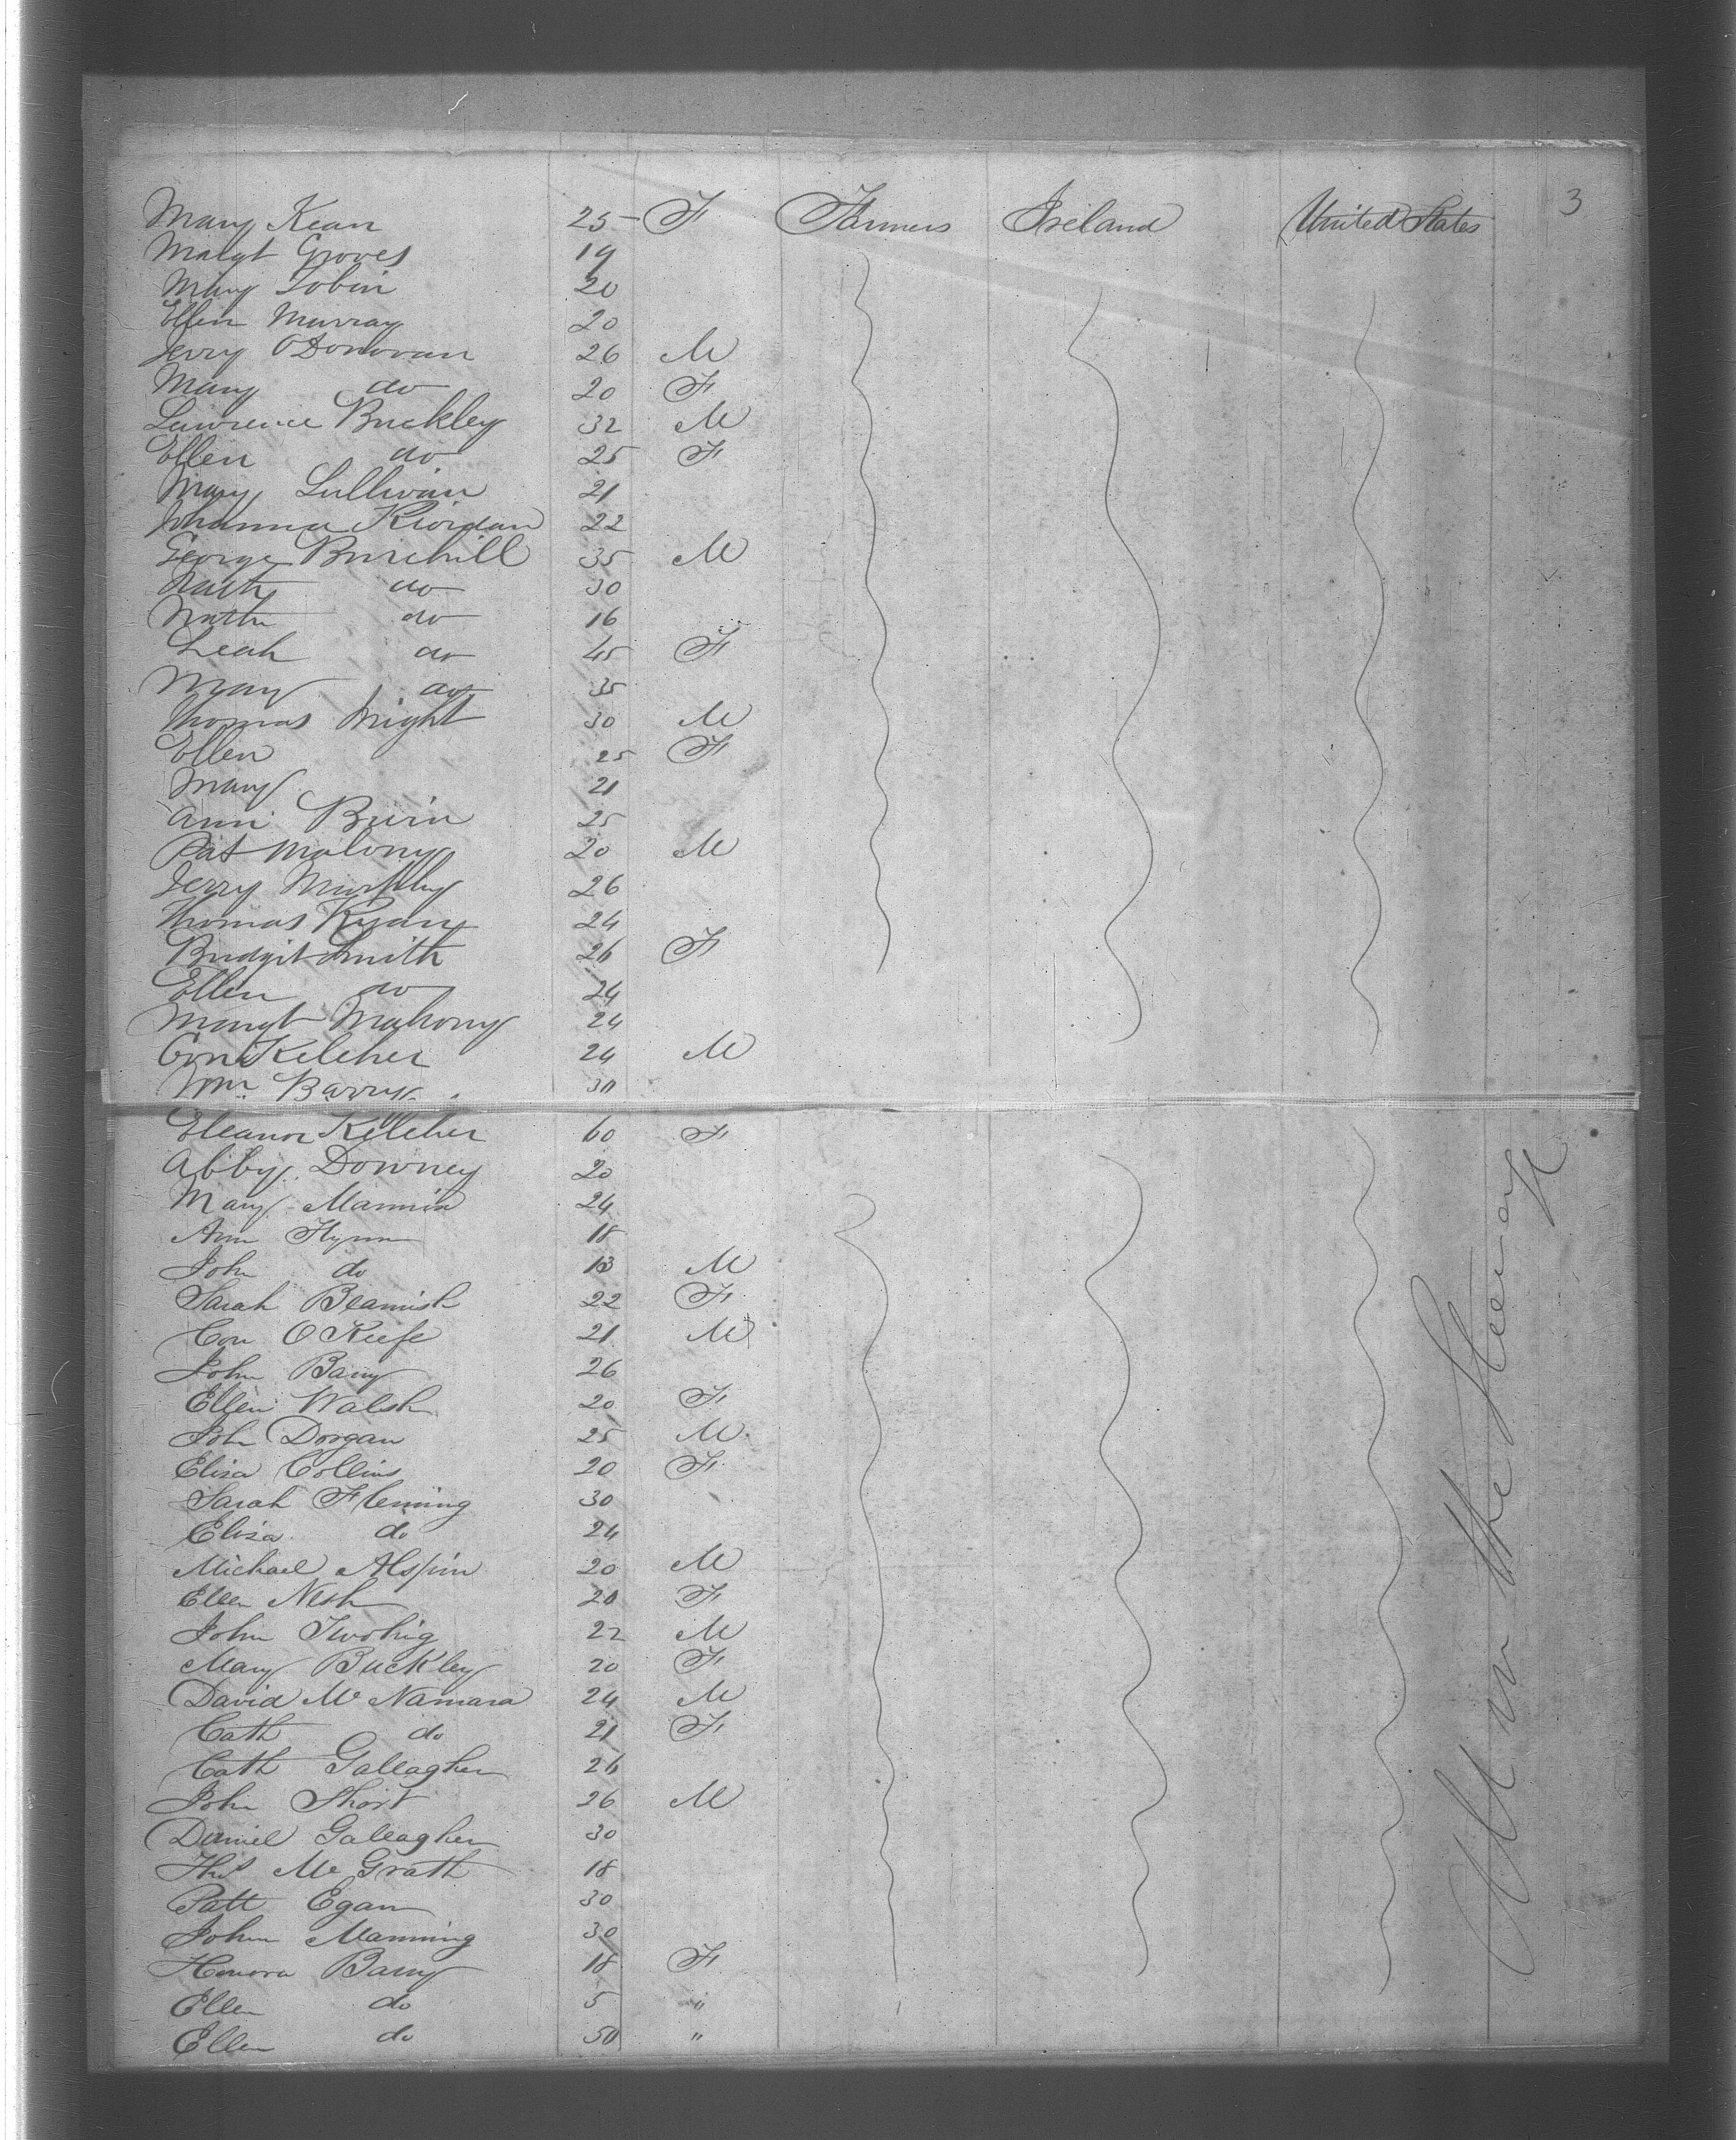 3
Mary Kean 25 F Farmers Ireland United States
Margt Groves 19
Mary Tobin 20
Ellen Murray 20
Jerry O'Donovan 26 M
Mary do 20 F
Lawrence Buckley 32 M
Ellen do 25 F
Mary Sullivan 21
Johanna Riordan 22
George Burchill 35 M
do 30
do 16
Leah do 45 F
Mary do 35
Thomas Wright 30 M
Ellen 25 F
Mary 21
Ann 25
Pat Malony 20 M
Jerry Murphy 26
Thomas Ryan 24
Bridgit Smith 26 F
Ellen do 24
Margt Mahony 24
Con Kelcher 24 M
Wm. Barry 30
Eleanor Kelcher 60 F
Abby Downey 20
Mary Mannin 24
Ann Flynn 18
John do 13 M
Sarah Beamish 22 F
Con O Keefe 21 M
John Barry 26
Ellen Walsh 20 F
John Dorgan 25 M
Elisa Collins 20 F
Sarah Fleming 30
Elisa do 24
Michael Alspin 20 M
Ellen Nesh 20 F
John Twohig 22 M
Mary Buckley 20 F
David Mc Namara 24 M
Cath do 21 F
Cath Gallagher 26
John Short 26 M
Daniel Galeagher 30
Thos Mc Grath 18
Patt Egan 30
John Manning 30
Honora Barry 18 F
Ellen do 5 "
Ellen do 50 "
All in the Steerage